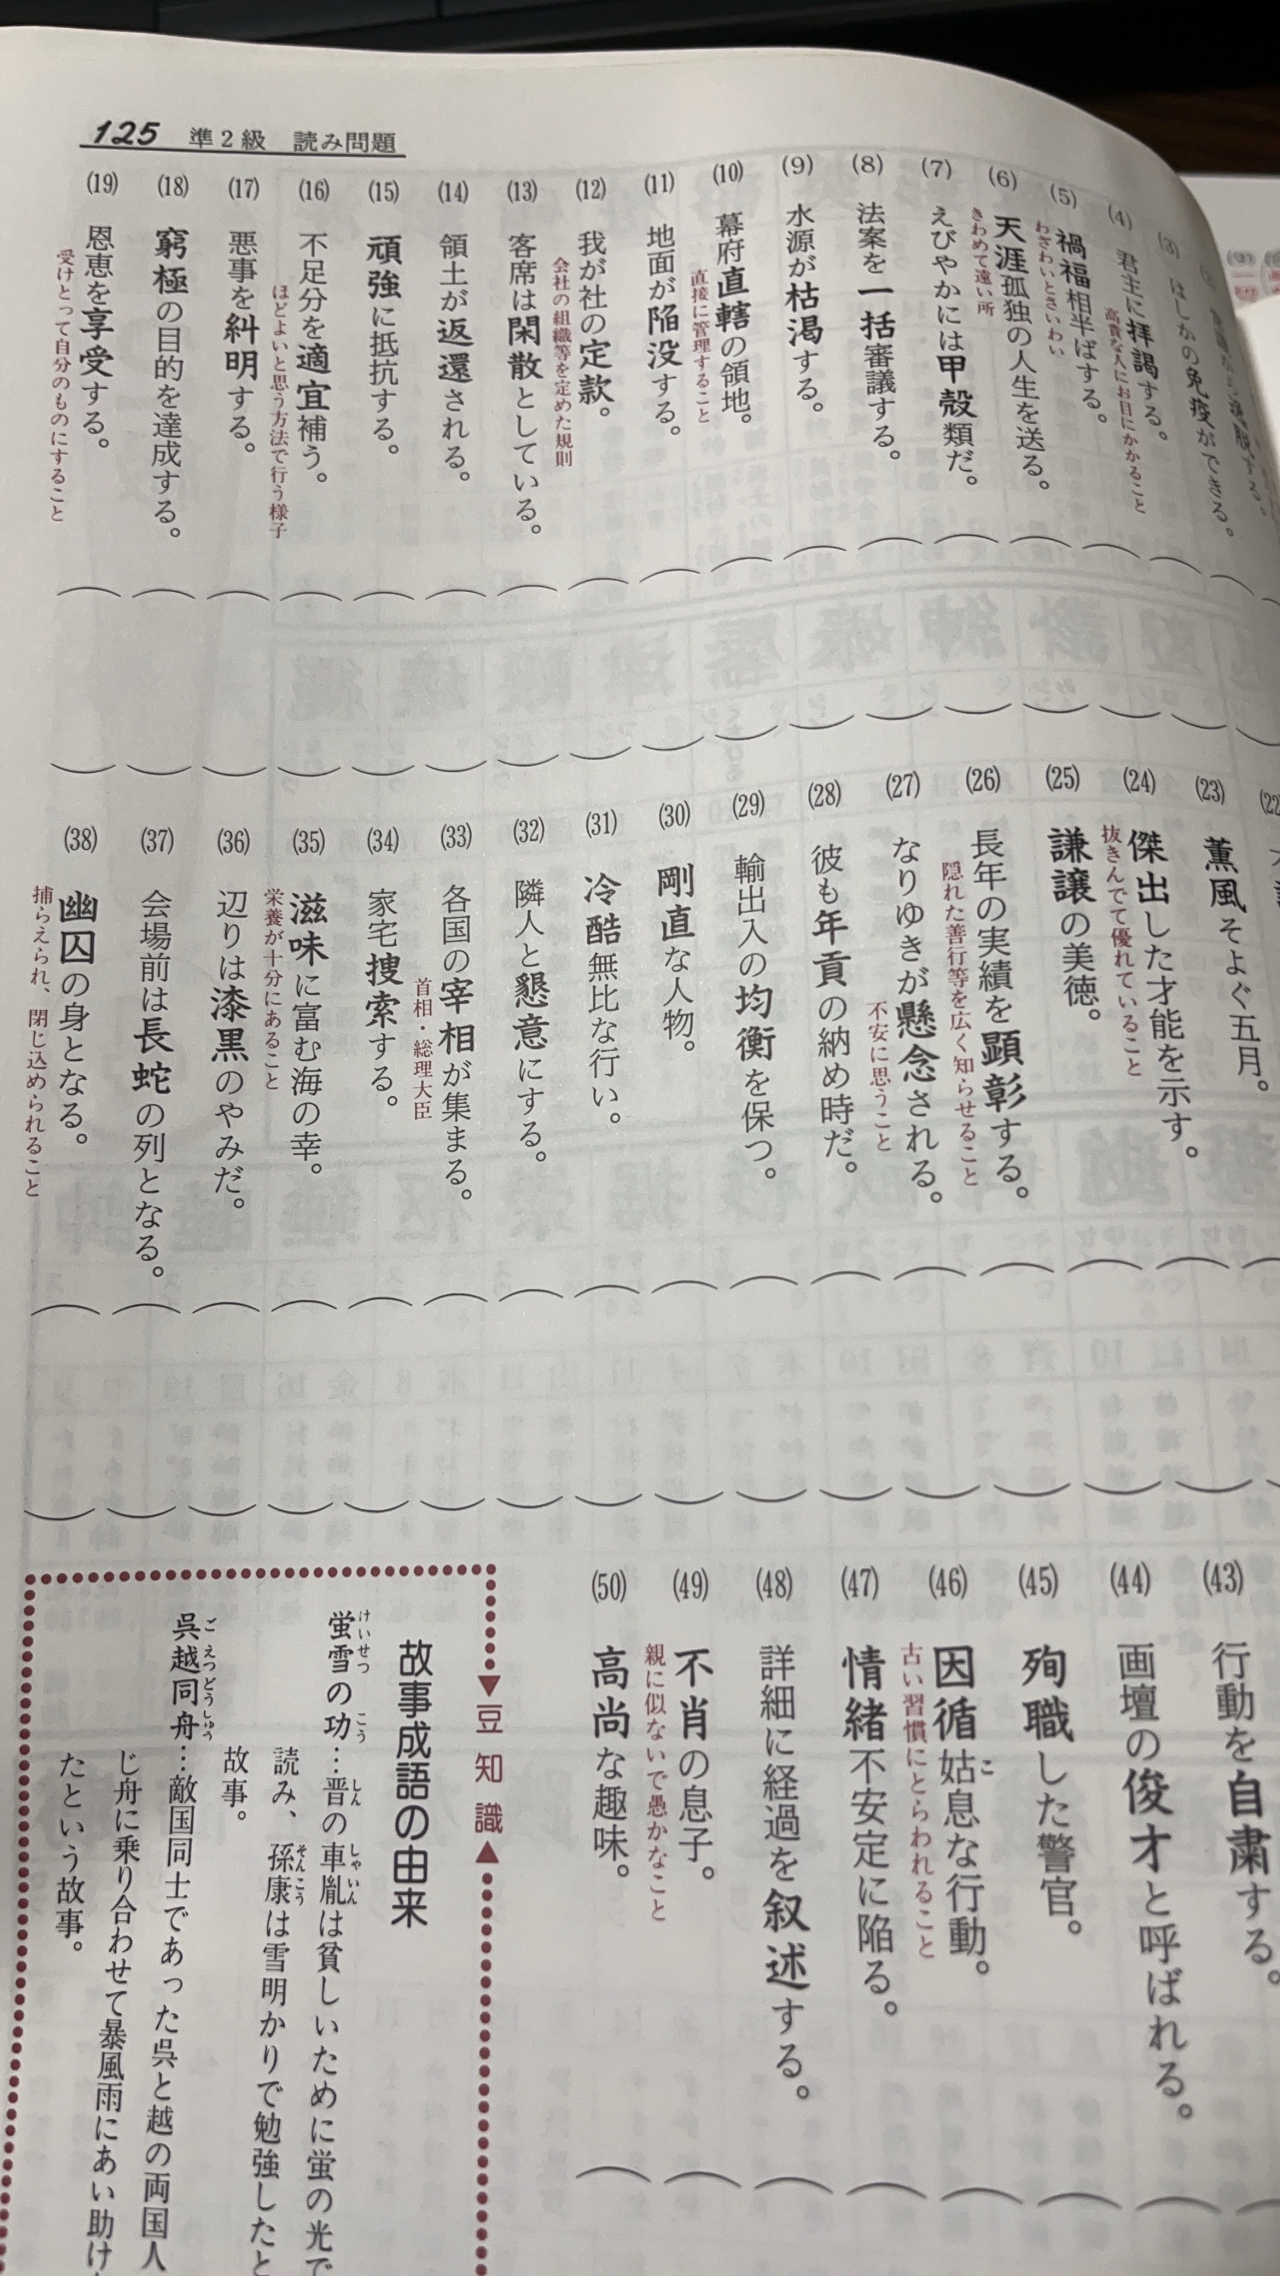 125 準2級 読み問題
(3) はしかの免疫ができる。
(4) 君主に拝謁する。
高貴な人にお目にかかること
(5) 禍福相半ばする。
わざわいとさいわい
(6) 天涯孤独の人生を送る。
きわめて遠い所
(7) えびやかには甲殻類だ。
(8) 法案を一括審議する。
(9) 水源が枯渇する。
(10) 幕府直轄の領地。
直接に管理すること
(11) 地面が陥没する。
(12) 我が社の定款。
会社の組織等を定めた規則
(13) 客席は閑散としている。
(14) 領土が返還される。
(15) 頑強に抵抗する。
(16) 不足分を適宜補う。
ほどよいと思う方法で行う様子
(17) 悪事を糾明する。
(18) 窮極の目的を達成する。
(19) 恩恵を享受する。
受けとって自分のものにすること
(22)
(23) 薫風そよぐ五月。
(24) 傑出した才能を示す。
抜きんでて優れていること
(25) 謙譲の美徳。
(26) 長年の実績を顕彰する。
隠れた善行等を広く知らせること
(27) なりゆきが懸念される。
不安に思うこと
(28) 彼も年貢の納め時だ。
(29) 輸出入の均衡を保つ。
(30) 剛直な人物。
(31) 冷酷無比な行い。
(32) 隣人と懇意にする。
(33) 各国の宰相が集まる。
首相・総理大臣
(34) 家宅捜索する。
(35) 滋味に富む海の幸。
栄養が十分にあること
(36) 辺りは漆黒のやみだ。
(37) 会場前は長蛇の列となる。
(38) 幽囚の身となる。
捕らえられ、閉じ込められること
(43) 行動を自粛する。
(44) 画壇の俊才と呼ばれる。
(45) 殉職した警官。
(46) 因循姑息な行動。
こ
古い習慣にとらわれること
(47) 情緒不安定に陥る。
(48) 詳細に経過を叙述する。
(49) 不肖の息子。
親に似ないで愚かなこと
(50) 高尚な趣味。
▼豆知識▲
故事成語の由来
けいせつ こう しん しゃいん
蛍雪の功…晋の車胤は貧しいために蛍の光で
そんこう
読み、孫康は雪明かりで勉強したと
故事。
ごえつどうしゅう
呉越同舟…敵国同士であった呉と越の両国人
じ舟に乗り合わせて暴風雨にあい助け
たという故事。